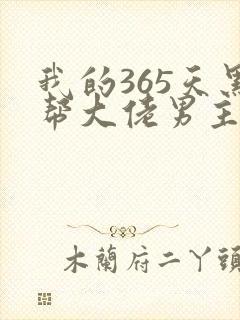 我的365天黑
帮大佬男主
木蘭府二丫頭